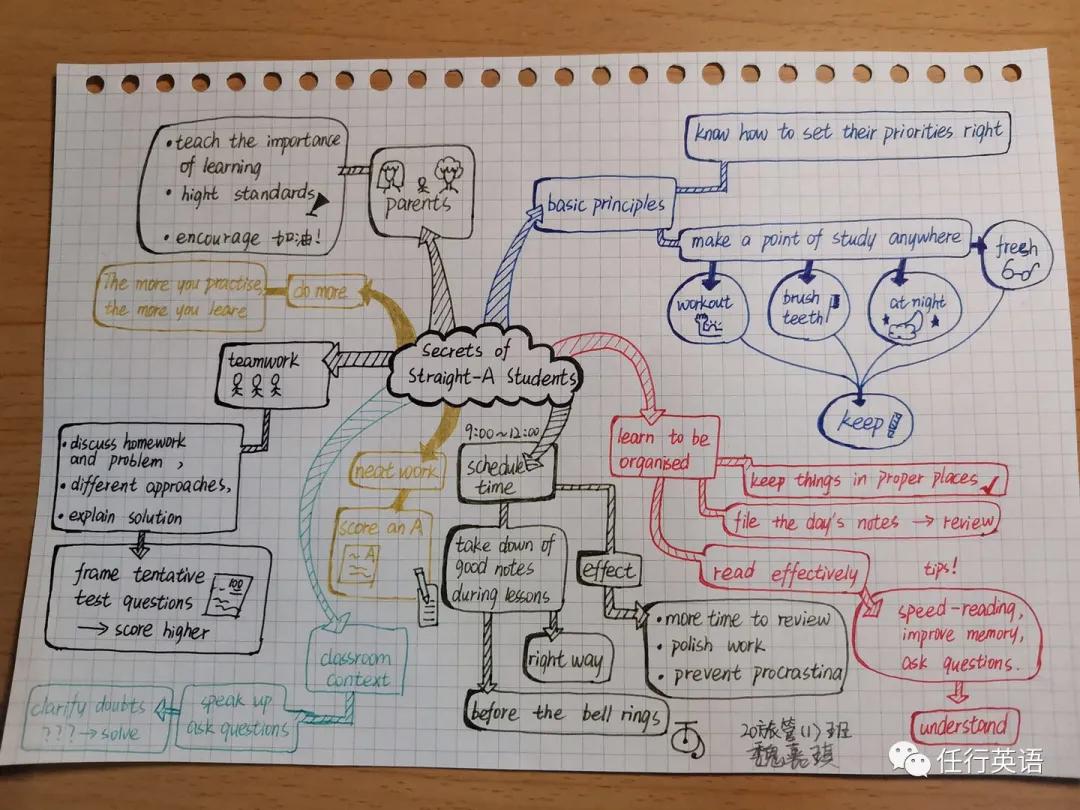 • teach the importance
of learning
• hight standards
• encourage 加油!
parents
know how to set their priorities right
basic principles
make a point of study anywhere
fresh
workout
brush
teeth
at night
keep
The more you practise,
the more you leare
do more
teamwork
• discuss homework
and problem,
• different approaches,
• explain solution
frame tentative
test questions
100
→ score higher
Secrets of
Straight-A Students
neat work
score an A
A
9:00~12:00
schedule
time
take down of
good notes
during lessons
effect
right way
before the bell rings
• more time to review
• polish work
• prevent procrastina
learn to be
organised
keep things in proper places
file the day's notes → review
read effectively
tips!
speed-reading,
improve memory,
ask questions.
understand
classroom
context
speak up
ask questions
clarify doubts
??? → solve
20旅管(1)班
任行英语